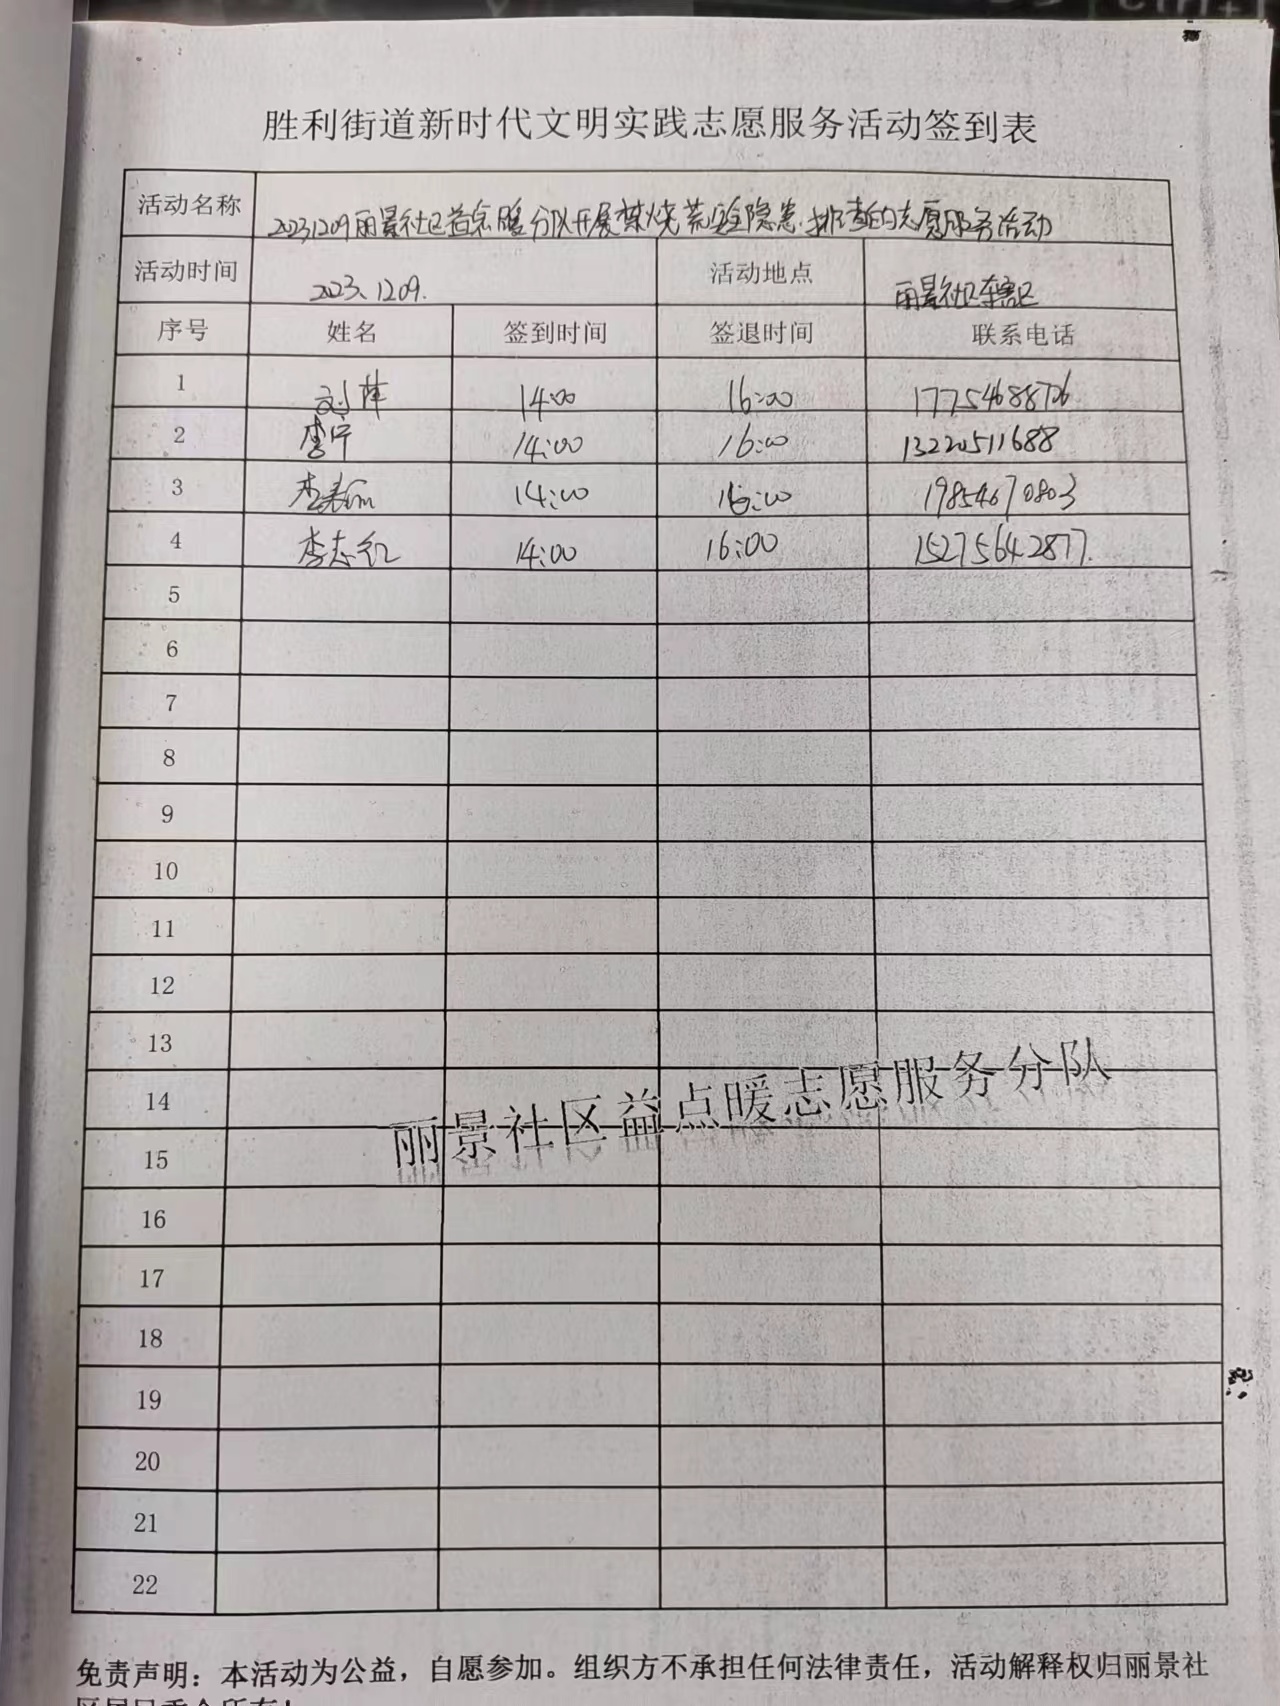 胜利街道新时代文明实践志愿服务活动签到表
活动名称 20231209丽景社区益点暖分队开展焚烧荒安全隐患排查的志愿服务活动
活动时间 2023.1209. 活动地点 丽景社区辖区
序号 姓名 签到时间 签退时间 联系电话
1 刘萍 14:00 16:00 17754688726
2 李宁 14:00 16:00 13220511688
3 李 14:00 16:00 19854670803
4 李志红 14:00 16:00 15275642877.
5
6
7
8
9
10
11
12
13
14
丽景社区益点暖志愿服务分队
15
16
17
18
19
20
21
22
免责声明：本活动为公益，自愿参加。组织方不承担任何法律责任，活动解释权归丽景社
区居民委会所有！